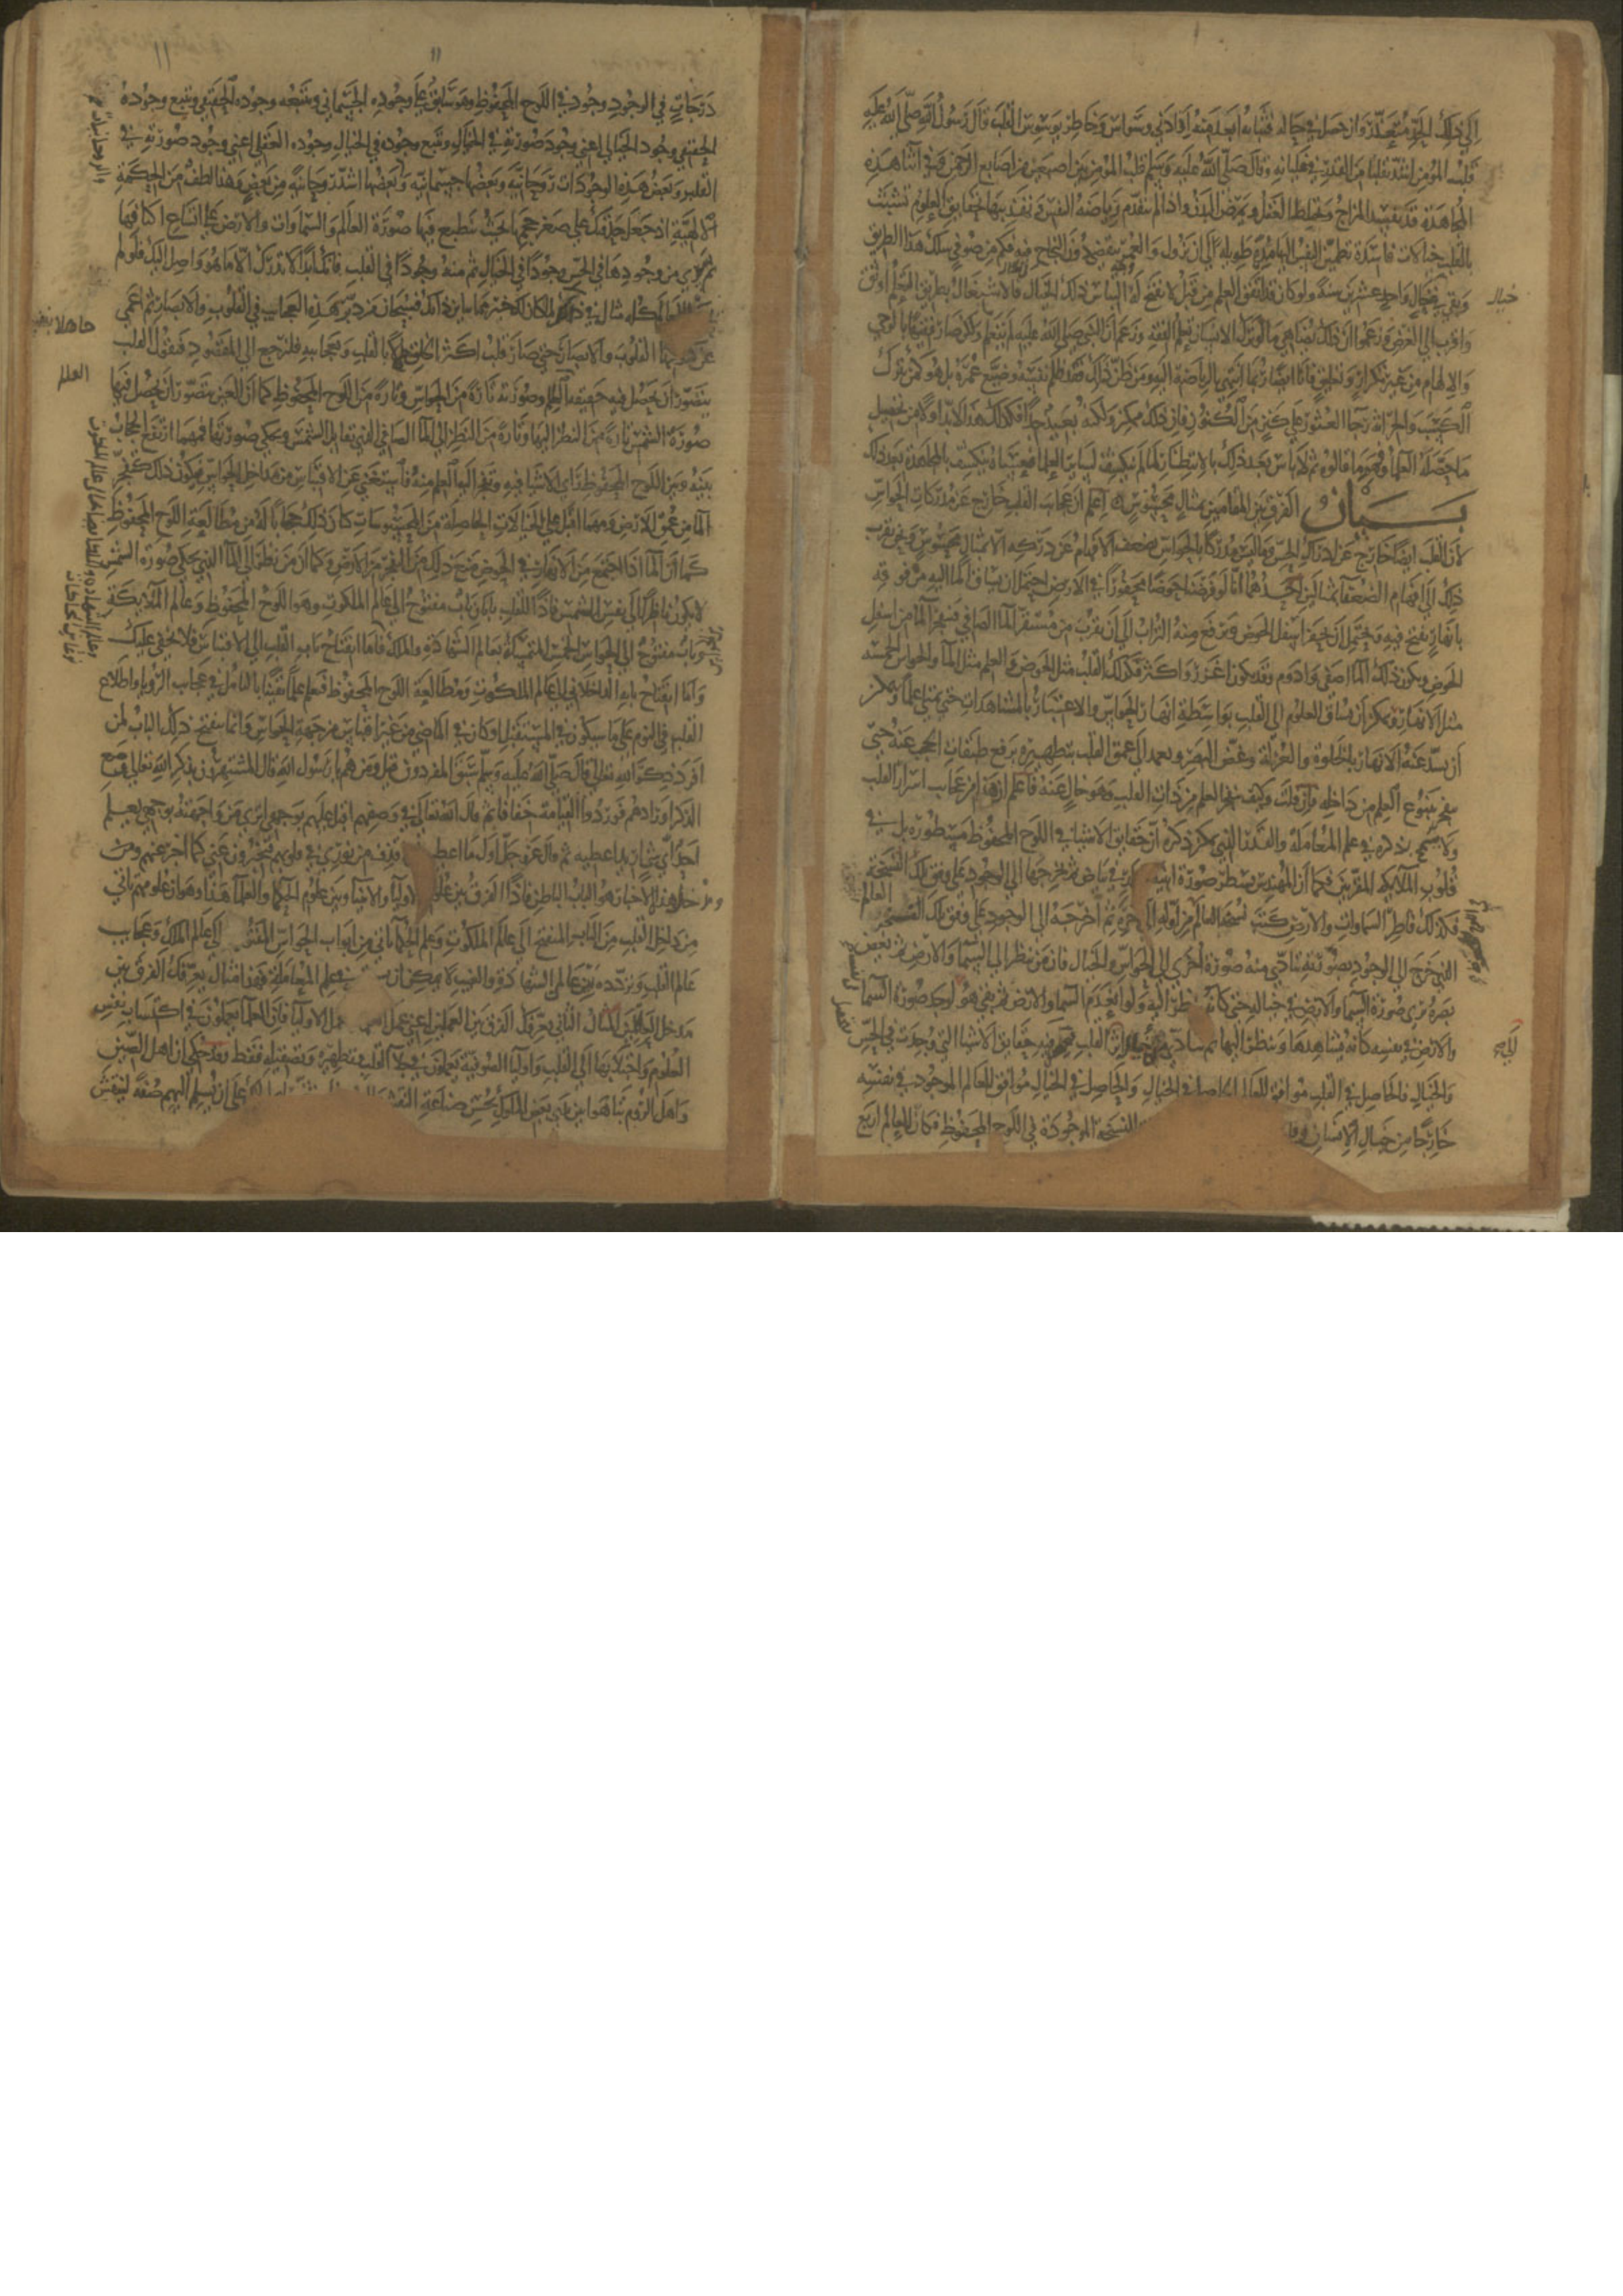 إلى ذلك الحد متعذر وان حصل في حاله فثباته ابعد منه اذ ادنى وسواس وخاطر يوسوس القلب قال رسول الله صلى الله عليه
قلب المؤمن اشد تقلبا من القدر في غليانه وقال صلى الله عليه وسلم قلب المؤمن بين اصبعين من اصابع الرحمن وفي اثنا هذه
المجاهدة قد يفسد المزاج ويختلط العقل ويمرض البدن واذا لم تتقدم رياضة النفس وتهذيبها بحقايق العلوم تشبثت
بالقلب خيالات فاسدة تطمئن النفس اليها مدة طويلة الى ان تزول والعمر ينقضي دون النجاح فيه فكم من صوفي سلك هذا الطريق
وبقي في خيال واحد عشرين سنة ولو كان قد اتقن العلم من قبل لانفتح له التباس ذلك الخيال فالاشتغال بطريق التعلم اوثق
واقرب الى الغرض وزعموا ان ذلك يضاهي ما لو ترك الانسان تعلم الفقه وزعم ان النبي صلى الله عليه لم يتعلم ولكن صار فقيها بالوحي
والالهام من غير تكرار وتعليق فانا ايضا ربما انتهي بالرياضة اليه ومن ظن ذلك فقد ظلم نفسه وضيع عمره بل هو كمن يترك
الكسب والحراثة رجا العثور على كنز من الكنوز فان ذلك ممكن ولكنه بعيد جدا فكذلك هذا لابد اولا من تحصيل
ما حصله العلما وفهم ما قالوه ثم لا باس بعد ذلك بالانتظار لما لم ينكشف لساير العلما فعساه ينكشف بالمجاهدة بعد ذلك
بيان الفرق بين المقامين بمثال محسوس اعلم ان عجايب القلب خارج عن مدركات الحواس
لان القلب ايضا خارج عن ادراك الحس وما ليس مدركا بالحواس تضعف الافهام عن دركه الا بمثال محسوس ونحن نقرب
ذلك الى افهام الضعفا بمثالين احدهما انا لو فرضنا حوضا محفورا في الارض احتمل ان يساق الما اليه من فوقه
بانهار تفتح فيه ويحتمل ان يحفر اسفل الحوض ويرفع منه التراب الى ان يقرب من مستقر الما الصافي فينفجر الما من اسفل
الحوض ويكون ذلك الما اصفى وادوم وقد يكون اغزر واكثر فكذلك القلب مثل الحوض والعلم مثل الما والحواس الخمسه
مثل الانهار ويمكن ان تساق العلوم الى القلب بواسطة انهار الحواس والاعتبار بالمشاهدات حتى يمتلي علما ويمكن
ان تسد عنه الانهار بالخلوة والعزلة وغض البصر ويعمد الى عمق القلب بتطهيره برفع طبقات الحجب عنه حتى
ينفجر ينبوع العلم من داخله فان قلت وكيف ينفجر العلم من ذات القلب وهو خال عنه فاعلم ان هذا من عجايب اسرار القلب
ولا يسمح بذكره في علم المعاملة والقدر الذي يمكن ذكره ان حقايق الاشيا في اللوح المحفوظ مسطورة بل في
قلوب الملايكة المقربين فكما ان المهندس يسطر صورة ابنيه في بياض ثم يخرجها الى الوجود على وفق تلك النسخة
فكذلك فاطر السماوات والارض كتب نسخة العالم من اوله الى اخره ثم اخرجه الى الوجود على وفق تلك النسخة
الذي خرج الى الوجود بصورته تتادى منه صورة اخرى الى الحواس والخيال فان من نظر الى السما والارض ثم يغض
بصره يرى صورة السما والارض في خياله حتى كانه ينظر اليه ولو انعدم السما والارض وبقي هو لوجد صورة السما
والارض في نفسه كانه يشاهدها وينظر اليها ثم يتادى من خياله اثر الى القلب فيحصل فيه حقايق الاشيا التي وجدت في الحس
والخيال فالحاصل في القلب موافق للعالم الحاصل في الخيال والحاصل في الخيال موافق للعالم الموجود في نفسه
خارجا من خيال الانسان النسخة الموجودة في اللوح المحفوظ فكان للعالم اربع
خيال
العالم
١١
درجات في الوجود وجود في اللوح المحفوظ وهو سابق على وجوده الجسماني ويتبعه وجوده الحقيقي ويتبع وجوده
الحقيقي وجوده الخيالي اعني وجود صورته في الخيال ويتبع وجوده في الخيال وجوده العقلي اعني وجود صورته في
القلب وبعض هذه الوجودات روحانية وبعضها جسمانية وبعضها اشد روحانية من بعض وهذا لطف من الحكمة
الالهية اذ جعل حدقتك على صغر حجمها بحيث تنطبع فيها صورة العالم والسماوات والارض على اتساع اكنافها
ثم يسري من وجودها في الحس وجود الى الخيال ثم منه وجود الى القلب فانك ابدا لا تدرك الا ما هو واصل اليك فلو لم
للعالم كله مثال في ذاتك لما كان لك خبر مما يباين ذاتك فسبحان من دبر هذه العجايب في القلوب والابصار ثم اعمى
عن دركها القلوب والابصار حتى صارت قلوب اكثر الخلق جاهلة بالقلب وبعجايبه فلنرجع الى المقصود فنقول القلب
يتصور ان يحصل فيه حقيقة العلم وصورته تارة من الحواس وتارة من اللوح المحفوظ كما ان العين يتصور ان يحصل فيها
صورة الشمس تارة من النظر اليها وتارة من النظر الى الما الصافي الذي يقابل الشمس ويحكي صورتها فمهما ارتفع الحجاب
بينه وبين اللوح المحفوظ راى الاشيا فيه وتفجر اليه العلم منه فاستغنى عن الاقتباس من مداخل الحواس فيكون ذلك كتفجر
الما من عمق الارض ومهما اقبل على الخيالات الحاصلة من المحسوسات كان ذلك حجابا له من مطالعة اللوح المحفوظ
كما ان الما اذا اجتمع من الانهار في الحوض منع ذلك من التفجر من الارض وكما ان من نظر الى الما الذي يحكي صورة الشمس
لا يكون ناظرا الى نفس الشمس فاذا للقلب بابان باب مفتوح الى عالم الملكوت وهو اللوح المحفوظ وعالم الملايكة
وباب مفتوح الى الحواس الخمس المتمسكة بعالم الشهادة والملك فاما انفتاح باب القلب الى الاقتباس فلا يخفى عليك
واما انفتاح بابه الداخلاني الى عالم الملكوت ومطالعة اللوح المحفوظ فتعلم علما يقينا بالتامل في عجايب الرويا واطلاع
القلب في النوم على ما سيكون في المستقبل او كان في الماضي من غير اقتباس من جهة الحواس وانما ينفتح ذلك الباب لمن
افرد ذكر الله تعالى قال صلى الله عليه وسلم سبق المفردون قيل ومن هم يا رسول الله قال المستهترون بذكر الله تعالى وضع
الذكر اوزارهم فوردوا القيامة خفافا ثم قال الله تعالى في وصفهم اقبل عليهم بوجهي اترى من واجهته بوجهي يعلم
احد اي شي اريد اعطيه ثم قال عز وجل اول ما اعطيهم اقذف من نوري في قلوبهم فيخبرون عني كما اخبر عنهم
ومدخل هذه الاخبار هو الباب الباطن فاذا الفرق بين علوم الاوليا والانبيا وبين علوم الحكما والعلما هذا وهو ان علومهم تاتي
من داخل القلب من الباب المنفتح الى عالم الملكوت وعلم الحكما تاتي من ابواب الحواس المفتوحة الى عالم الملك وعجايب
عالم القلب وتردده بين عالمي الشهادة والغيب لا يمكن ان في علم المعاملة فهذا مثال يعرفك الفرق بين
مدخل العلمين المثال الثاني يعرفك الفرق بين العملين اعني عمل العلما وعمل الاوليا فان العلما يعملون في اكتساب نفس
العلوم واجتلابها الى القلب واوليا الصوفية يعملون في جلا القلب وتطهيره وتصقيله فقط وقد حكي ان اهل الصين
واهل الروم تباهوا بين يدي بعض الملوك بحسن صناعة النقش على ان يسلم اليهم صفة لينقش
العلم